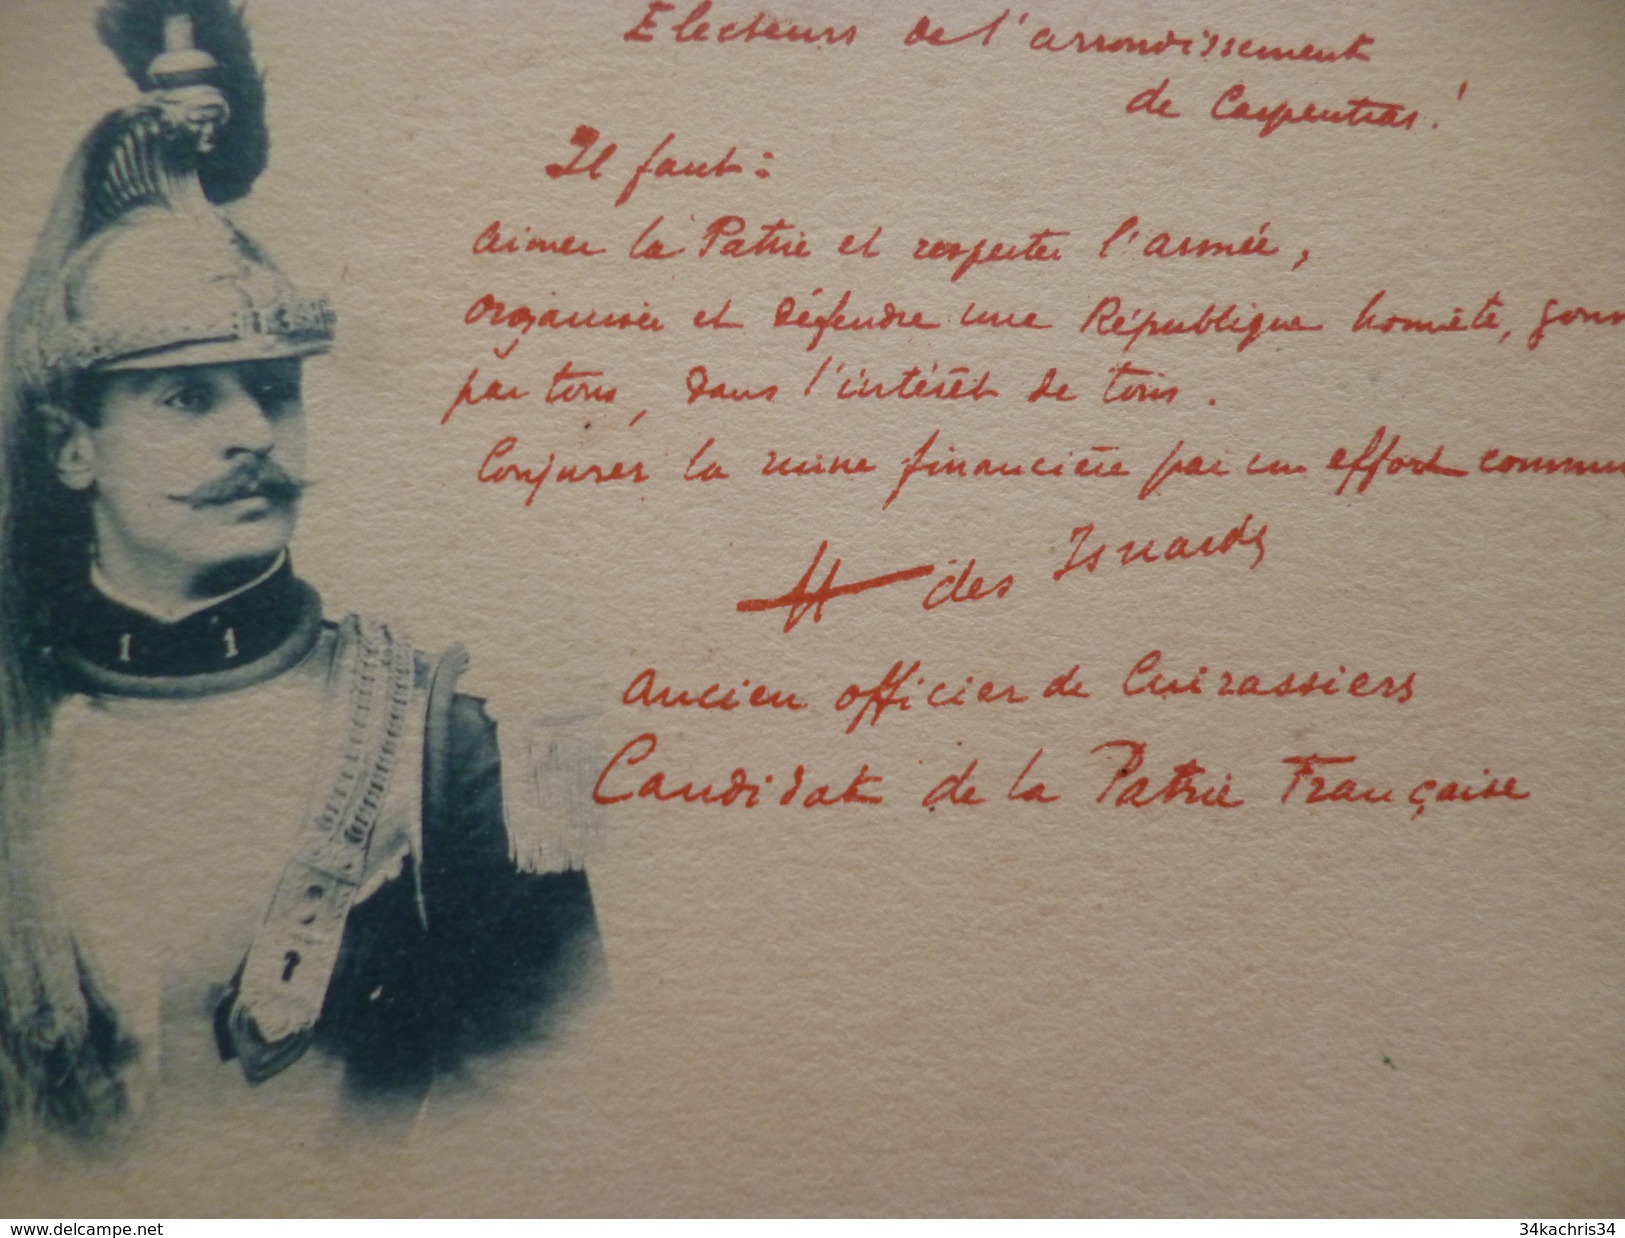 Electeurs de l'arrondissement
de Carpentras!
Il faut:
aimer la Patrie et respecter l'armée,
organiser et défendre une République honnête, gouv
par tous, dans l'intérêt de tous.
Conjurer la ruine financière par un effort commun
H des Isnards
ancien officier de Cuirassiers
Candidat de la Patrie Française
1 1
www.delcampe.net
34kachris34